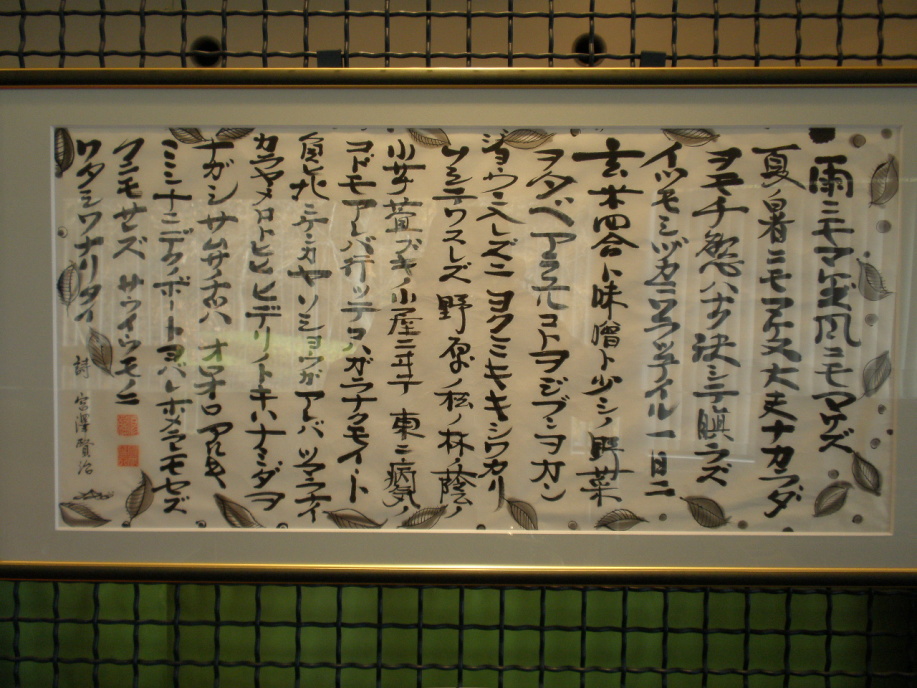 雨ニモマケズ風ニモマケズ
夏ノ暑ニモマケヌ丈夫ナカラダ
ヲモチ慾ハナク決シテ瞋ラズ
イツモシヅカニワラッテイル一日ニ
玄米四合ト味噌ト少シノ野菜
ヲタベアラユルコトヲジブンヲカン
ジョウニ入レズニヨクミキキシワカリ
ソシテワスレズ野原ノ松ノ林ノ蔭ノ
小サナ萱ブキノ小屋ニヰテ東ニ病気ノ
コドモアレバ行ッテコハガラナクモイヽト
北ニケンカヤソショウガアレバツマラナイ
カラヤメロトイヒヒデリノトキハナミダヲ
ナガシサムサノナツハオロオロアルキ
ミンナニデクノボートヨバレホメラレモセズ
クニモサレズサウイウモノニ
ワタシワナリタイ
詩 宮澤賢治